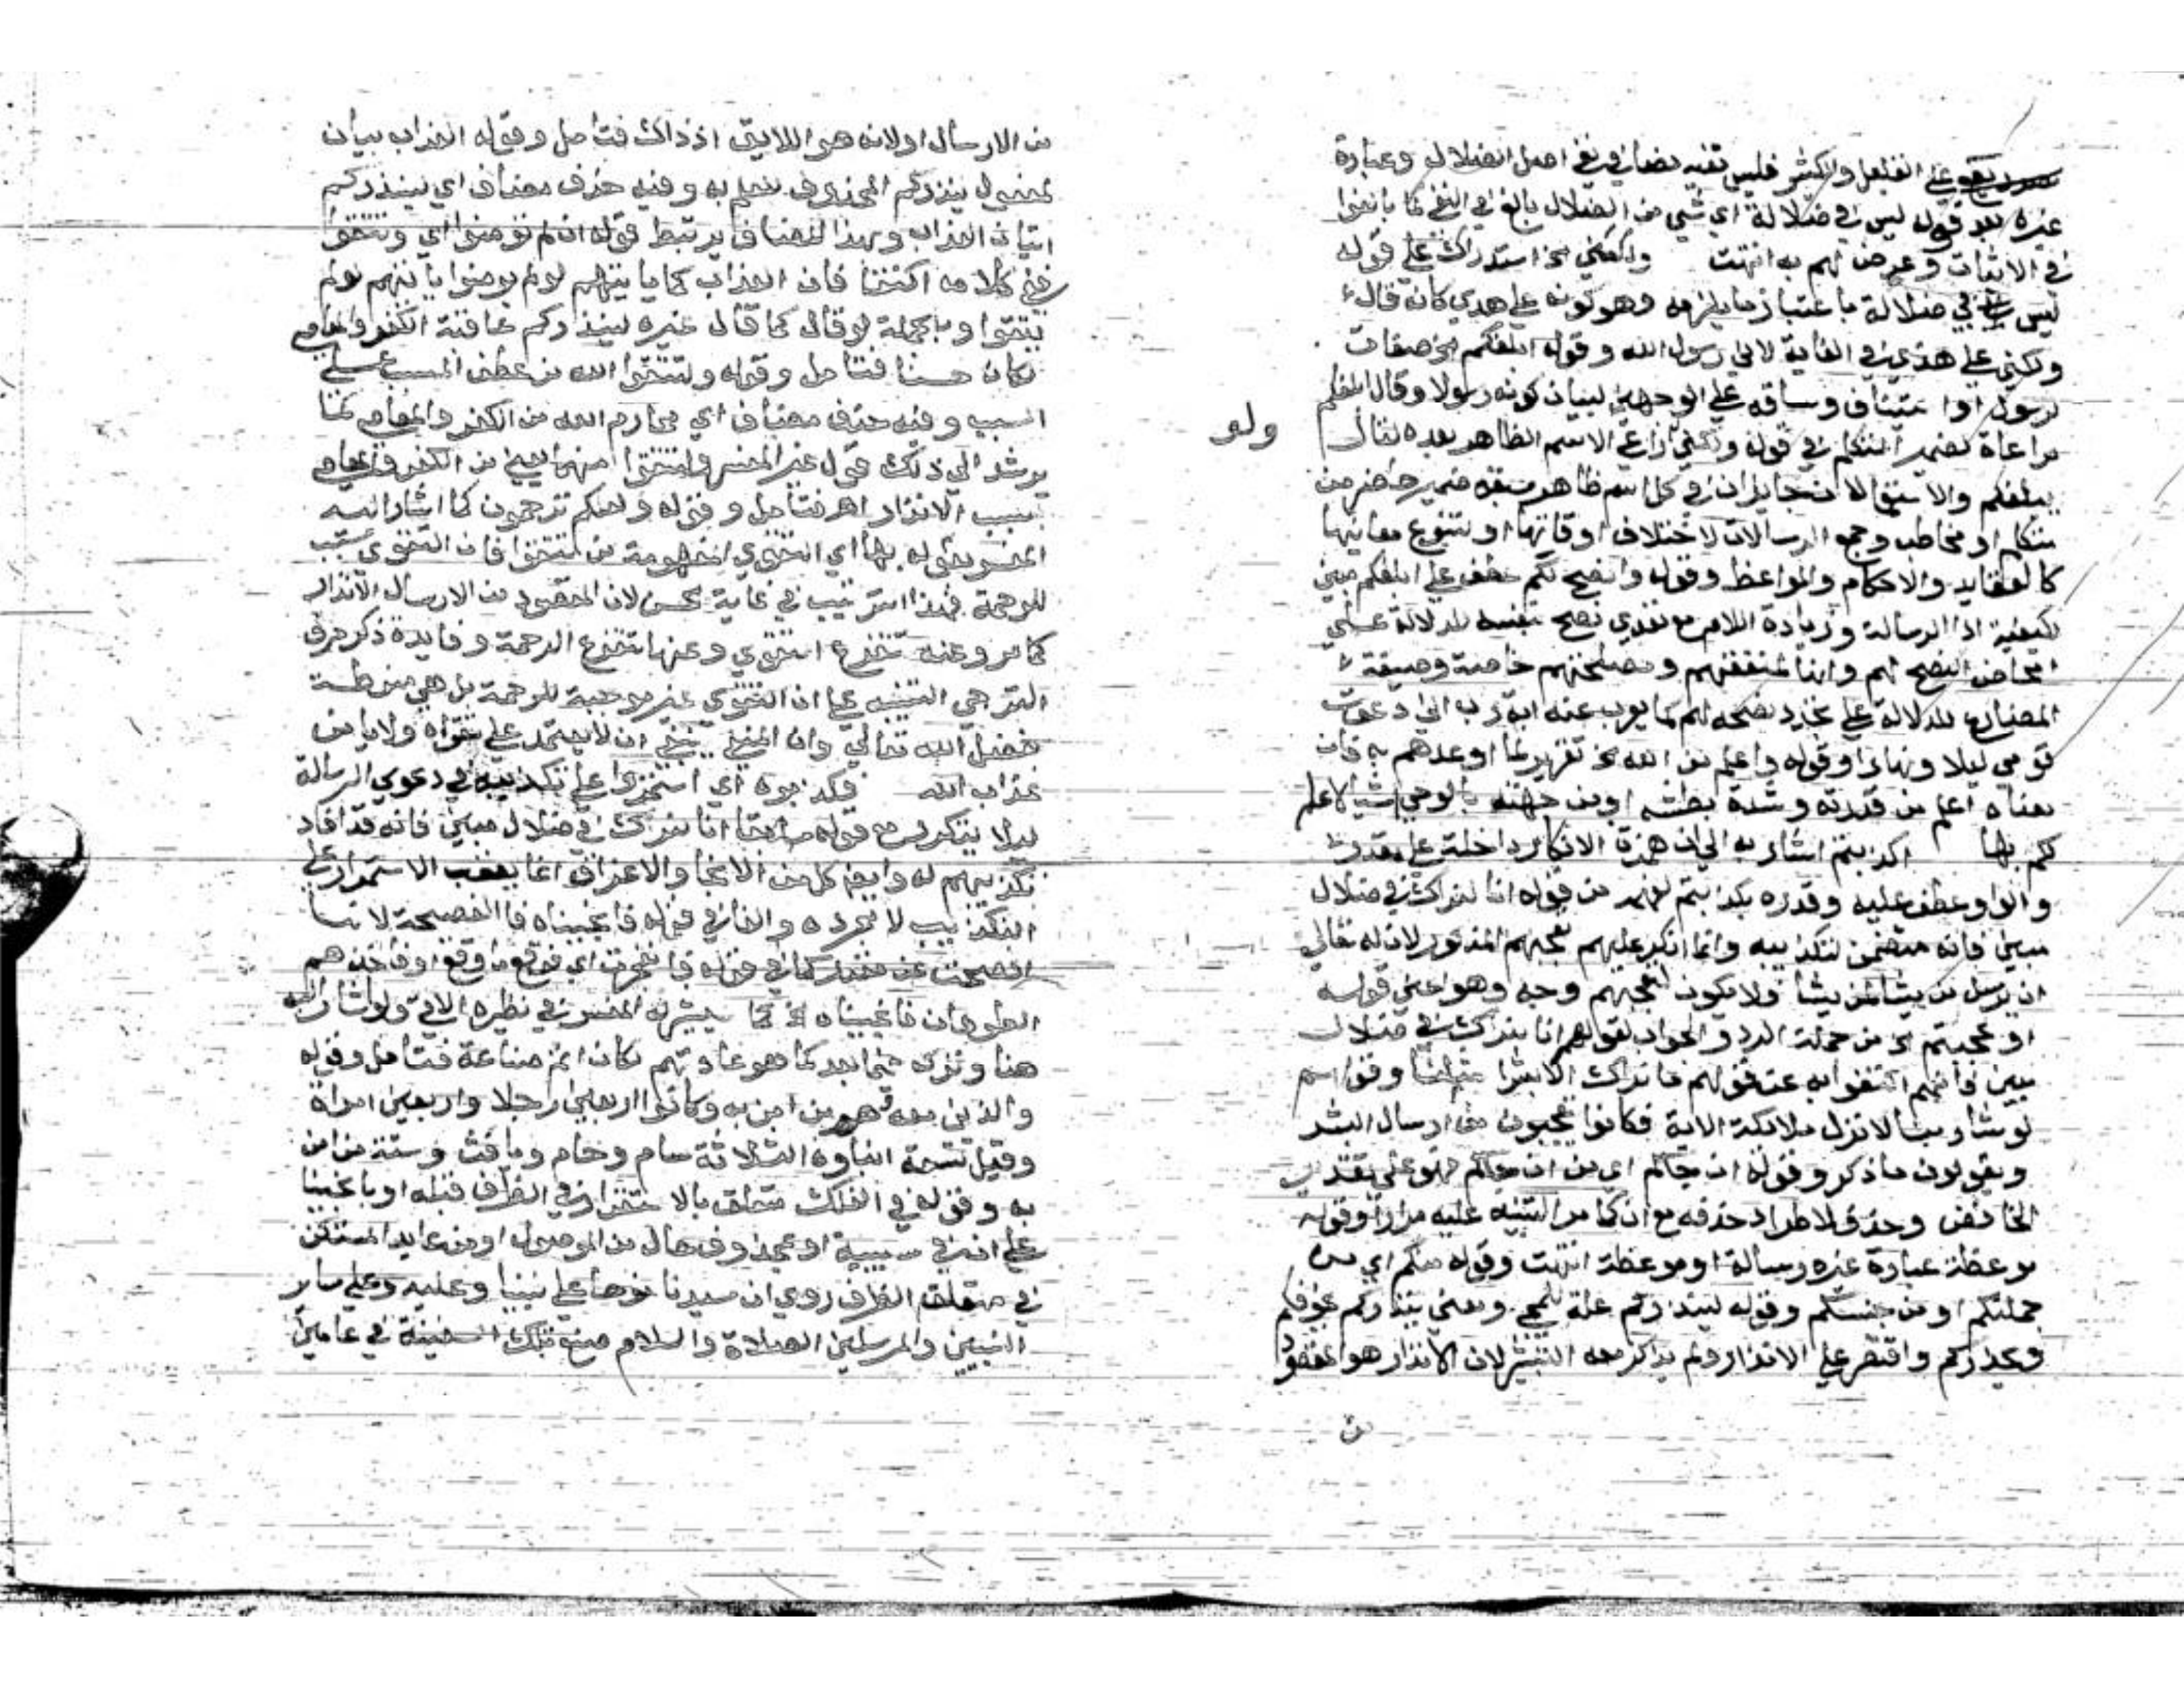 يقع على القليل والكثير فليس نفيه نصا في نفي اصل الضلال وعبارة
غيره بعد قوله ليس في ضلالة اي شي من الضلال بالغ في النفي كما بالغوا
في الاثبات وعرض لهم به انتهت ولكني الخ استدراك على قوله
ليس بي ضلالة باعتبار ما يلزمه وهو كونه على هدي كانه قال
ولكني على هدي في الغاية لاني رسول الله وقوله ابلغكم الخ صفات
لرسول او استيناف وساقه على الوجهين لبيان كونه رسولا وقال ابلغكم
مراعاة لضمير المتكلم في قوله ولكني ولو راعى الاسم الظاهر بعده لقال
يبلغكم والاستعمالان جايزان في كل اسم ظاهر سبقه ضمير حاضر من
متكلم او مخاطب وجمع الرسالات لاختلاف اوقاتها او لتنوع معانيها
كالعقايد والاحكام والمواعظ وقوله وانصح لكم عطف على ابلغكم مبين
لكيفية ادا الرسالة وزيادة اللام مع تعدي نصح بنفسه للدلالة على
امحاض النصح لهم وانها لمنفعتهم ومصلحتهم خاصة وصيغة
المضارع للدلالة على تجدد نصحه لهم كما يعرب عنه اية رب اني دعوت
قومي ليلا ونهارا وقوله واعلم من الله الخ تقرير لما اوعدهم به فان
معناه اعلم من قدرته وشدة بطشه او من جهته بالوحي اشيا لا علم
لكم بها اكذبتم اشار به الى ان همزة الانكار داخلة على مقدر
والواو عطف عليه وقدره بكذبتم لفهمه من قوله انا لنراك في ضلال
مبين فانه متضمن لتكذيبه وانما انكر عليهم تعجبهم المذكور لان له تعالى
ان يرسل من يشا لمن يشا ولا يكون لتعجبهم وجه وهو اعني قوله
او عجبتم الخ من جملة الرد والجواب لقولهم انا لنراك في ضلال
مبين فانهم اكتفوا به عن قولهم ما نراك الا بشرا مثلنا وقولهم
لو شا ربنا لانزل ملائكة الاية فكانوا يعجبون من ارسال البشر
ويقولون ما ذكر وقوله ان جاكم اي من ان جاكم فهو على تقدير
الخافض وحذف لاطراد حذفه مع ان كما مر التنبيه عليه مرارا وقوله
موعظة عبارة غيره رسالة او موعظة انتهت وقوله منكم اي من
جملتكم او من جنسكم وقوله لينذركم علة للمجي ومعنى ينذركم يخوفكم
ويحذركم واقتصر على الانذار ولم يذكر معه التبشير لان الانذار هو المقصود
من
من الارسال او لانه هو اللايق اذ ذاك فتامل وقوله العذاب بيان
لمفعول ينذركم المحذوف للعلم به وفيه حذف مضاف اي لينذركم
اتيان العذاب وبهذا المضاف يرتبط قوله ان لم تومنوا اي وتتقوا
ففي كلامه اكتفا فان العذاب كما ياتيهم لو لم يومنوا ياتيهم لو لم
يتقوا وبالجملة لو قال كما قال غيره لينذركم عاقبة الكفر والمعاصي
لكان حسنا فتامل وقوله ولتتقوا الله من عطف المسبب على
السبب وفيه حذف مضاف اي محارم الله من الكفر والمعاصي كما
يرشد الى ذلك قول غير المفسر ولتتقوا منهما اي من الكفر والمعاصي
بسبب الانذار اهـ فتامل وقوله ولعلكم ترحمون كما اشار اليه
المفسر بقوله بها اي التقوي المفهومة من لتتقوا فان التقوي سبب
للرحمة فهذا الترتيب في غاية الحسن لان المقصود من الارسال الانذار
كما مر وعنه تتفرع التقوي وعنها تتفرع الرحمة وفايدة ذكر حرف
الترجي التنبيه على ان التقوي غير موجبة للرحمة بل هي منوطة
بفضل الله تعالى وان المتقي ينبغي ان لا يعتمد على تقواه ولا يامن
عذاب الله فكذبوه اي استمروا على تكذيبه في دعوي الرسالة
ليلا يتكرر مع قوله سابقا انا لنراك في ضلال مبين فانه قد افاد
تكذيبهم له وايضا كل من الانجا والاغراق انما يعقب الاستمرار على
التكذيب لا مجرده والفا في قوله فانجيناه فا الفصيحة لانها
افصحت عن مقدر كما في قوله فانفجرت اي فوقع ما وقع او فاخذهم
الطوفان فانجيناه الخ كما يشير له المفسر في نظيره الاتي ولو اشار اليه
هنا وتركه فيما بعد كما هو عادتهم لكان اتم صناعة فتامل وقوله
والذين معه هم من امن به وكانوا اربعين رجلا واربعين امراة
وقيل تسعة ابناوه الثلاثة سام وحام ويافث وستة ممن امن
به وقوله في الفلك متعلق بالاستقرار في الظرف قبله او بانجينا
على ان في سببية او بمحذوف حال من الموصول او من عايد المستكن
في متعلق الظرف روي ان سيدنا نوحا على نبينا وعليه وعلى ساير
النبيين والمرسلين الصلاة والسلام صنع تلك السفينة في عامين